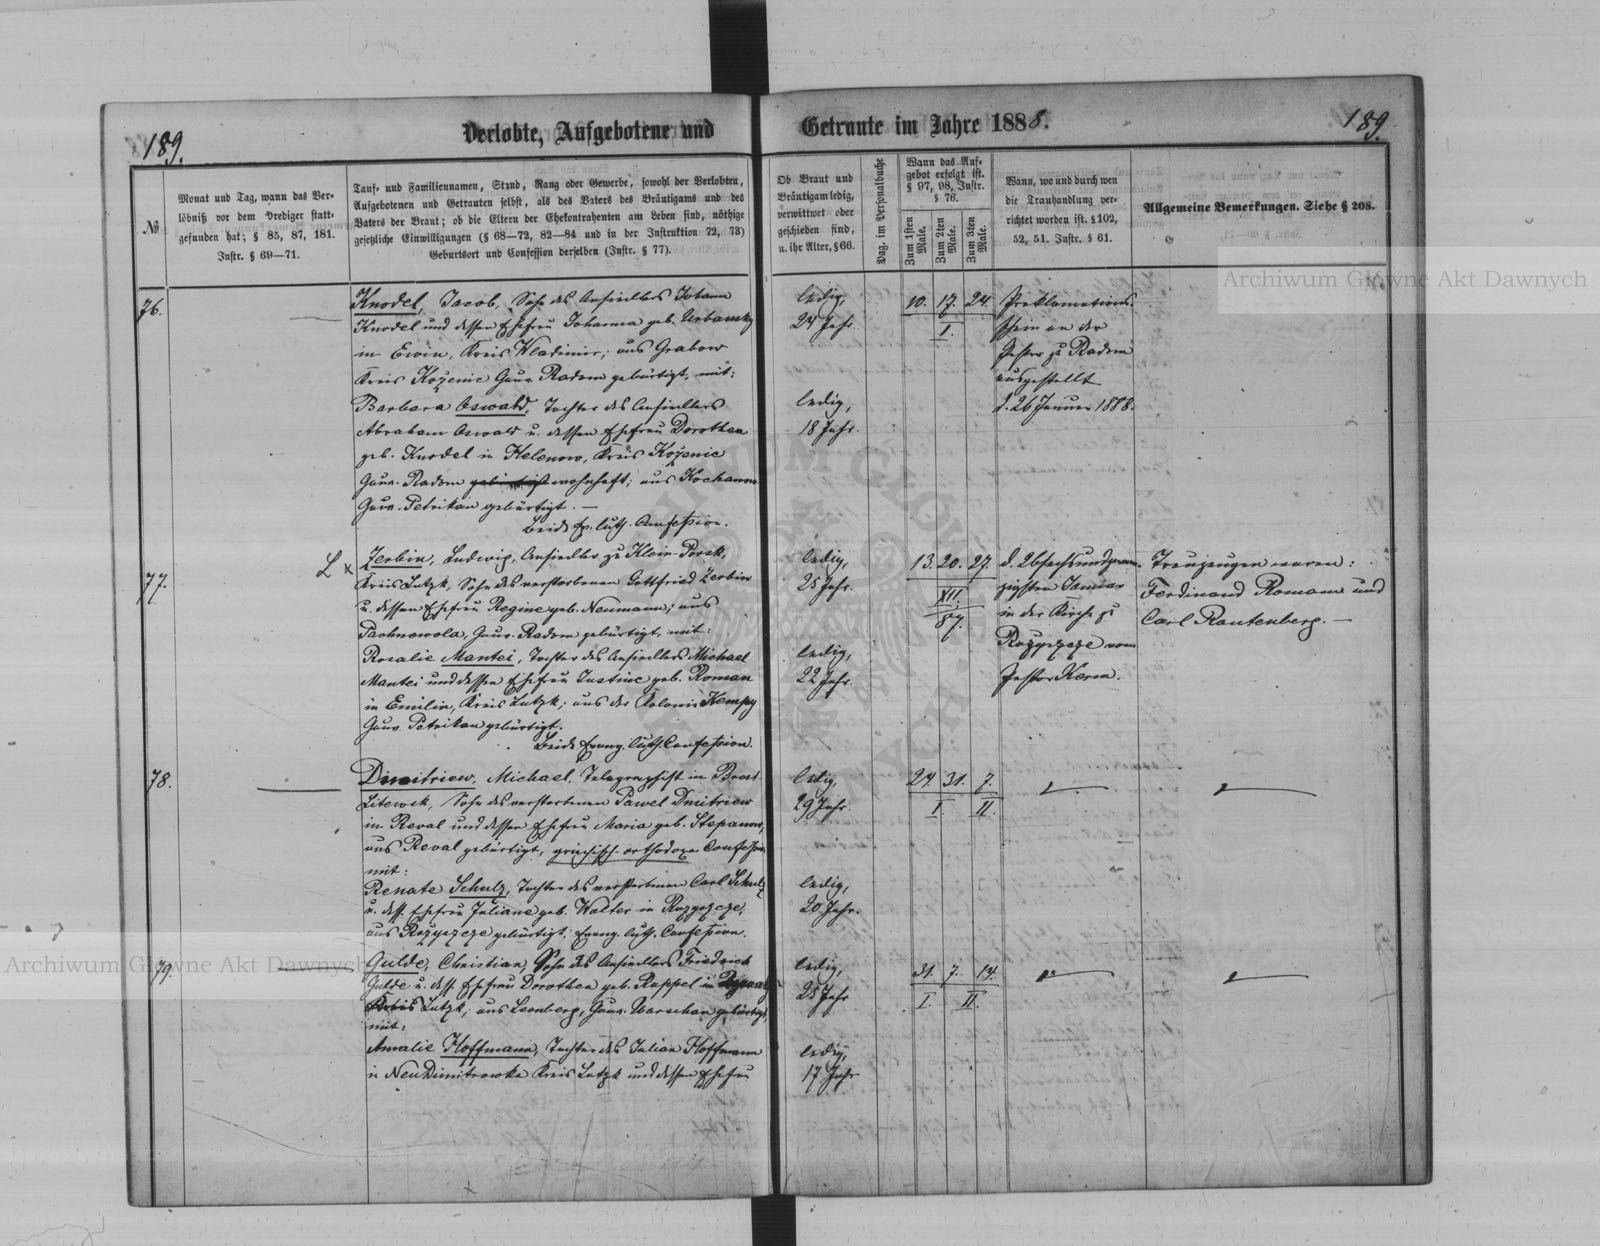 189.
Verlobte, Aufgebotene und
Getraute im Jahre 1888.
189.
№
Monat und Tag, wann das Ver-
löbniß vor dem Prediger statt-
gefunden hat; § 85, 87, 181.
Instr. § 69—71.
Tauf- und Familiennamen, Stand, Rang oder Gewerbe, sowohl der Verlobten,
Aufgebotenen und Getrauten selbst, als des Vaters des Bräutigams und des
Vaters der Braut; ob die Eltern der Ehekontrahenten am Leben sind, nöthige
gesetzliche Einwilligungen (§ 68—72, 82—84 und in der Instruktion 72, 73)
Geburtsort und Confession derselben (Instr. § 77).
Ob Braut und
Bräutigam ledig,
verwittwet oder
geschieden sind,
u. ihr Alter, § 66.
Pag. im Personalbuche
Wann das Auf-
gebot erfolgt ist.
§ 97, 98, Instr.
§ 76.
Zum 1sten
Male.
Zum 2ten
Male.
Zum 3ten
Male.
Wann, wo und durch wen
die Trauhandlung ver-
richtet worden ist. § 102,
52, 51. Instr. § 61.
Allgemeine Bemerkungen. Siehe § 208.
76.
Knodel, Jacob, Sohn des Ansiedlers Johann
Knodel und dessen Ehefrau Johanna geb. Urbansky
in Erwin, Kreis Wladimir; aus Grabow
Kreis Kożenic Gouv. Radom gebürtigt, mit:
Barbara Oswald, Tochter des Ansiedlers
Abraham Oswald u. dessen Ehefrau Dorothea
geb. Knodel in Helenow, Kreis Kożenic
Gouv. Radom wohnhaft; aus Kochanow
Gouv. Petrikau gebürtigt. —
Beide Ev. luth. Confession.
ledig,
24 Jahr.
ledig,
18 Jahr.
10. 17. 24.
I.
Proklamations
schein an den
Pastor zu Radom
ausgestellt
d. 26 Januar 1888.
77.
L x
Zerbin, Ludwig, Ansiedler zu Klein-Porsk,
Kreis Lutzk, Sohn des verstorbenen Gottfried Zerbin
u. dessen Ehefrau Regine geb. Neumann; aus
Pachnowola, Gouv. Radom gebürtigt, mit:
Rosalie Mantei, Tochter des Ansiedlers Michael
Mantei und dessen Ehefrau Justine geb. Roman
in Emilin, Kreis Lutzk; aus der Kolonie Kempy
Gouv. Petrikau gebürtigt.
Beide Evang. luth. Confession.
ledig,
25 Jahr.
ledig,
22 Jahr.
13. 20. 27.
XII.
87.
d. 26 sechsundzwan-
zigsten Januar
in der Kirche zu
Rozyszcze vom
Pastor Kerm.
Trauzeugen waren:
Ferdinand Romann und
Carl Rautenberg. —
78.
Dmitriew, Michael, Telegraphist in Brest-
Litewsk, Sohn des verstorbenen Pawel Dmitriew
in Reval und dessen Ehefrau Maria geb. Stepanow,
aus Reval gebürtigt, griechisch-orthodoxe Confession
mit:
Renate Schulz, Tochter des verstorbenen Carl Schulz
u. dess. Ehefrau Juliane geb. Walter in Rozyszcze,
aus Rożyszcze gebürtigt; Evang. luth. Confession.
ledig,
29 Jahr.
ledig,
20 Jahr.
24. 31. 7.
I. II.
79.
Gulde, Christian, Sohn des Ansiedlers Friedrich
Gulde u. dess. Ehefrau Dorothea geb. Rappel in
Kreis Lutzk; aus Leonberg, Gouv. Warschau gebürtigt,
mit:
Amalie Hoffmann, Tochter des Julian Hoffmann
in Neu Dimitrowka Kreis Lutzk und dessen Ehefrau
ledig,
25 Jahr
ledig,
17 Jahr
31. 7. 14.
I. II.
Archiwum Główne Akt Dawnych
Archiwum Główne Akt Dawnych